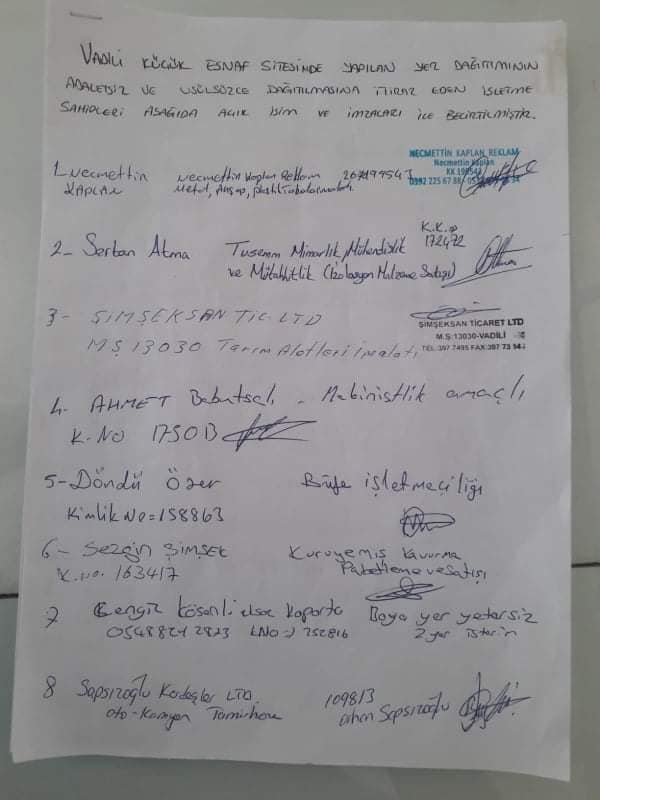 VADİLİ KÜÇÜK ESNAF SİTESİNDE YAPILAN YER DAĞITIMININ
ADALETSİZ VE USÜLSÜZCE DAĞITILMASINA İTİRAZ EDEN İŞLETME
SAHİPLERİ AŞAĞIDA AÇIK İSİM VE İMZALARI İLE BELİRTİLMİŞTİR.
1. Necmettin KAPLAN
Necmettin Kaplan Reklam
Metal, Ahşap,
NECMETTİN KAPLAN REKLAM
Necmettin Kaplan
0392 225 67 88
2- Serban Atma
K.K.
172472
Mimarlık, Mühendislik
ve Mütahhitlik (İzolasyon Malzeme Satışı)
3- ŞİMŞEKSAN TİC. LTD
MŞ 13030 Tarım Aletleri İmalatı
ŞİMŞEKSAN TİCARET LTD
M.Ş:13030-VADİLİ
TEL:397 7495 FAX:397 73 94
4. AHMET Babutsalı - Makinistlik amaçlı
K. No 1750B
5- Döndü Özer Büfe işletmeciliği
Kimlik No=158863
6- Sezgin ŞİMŞEK Kuruyemiş Kavurma
K. no. 163417 Paketleme ve Satışı
7 Cengiz Kösanlı Kaporta Boya yer yetersiz
0548 824 2823 252816 2 yer isterim
8 Sapsızoğlu Kardeşler LTD. 109813
oto-Kamyon Tamirhane Orhan Sapsızoğlu